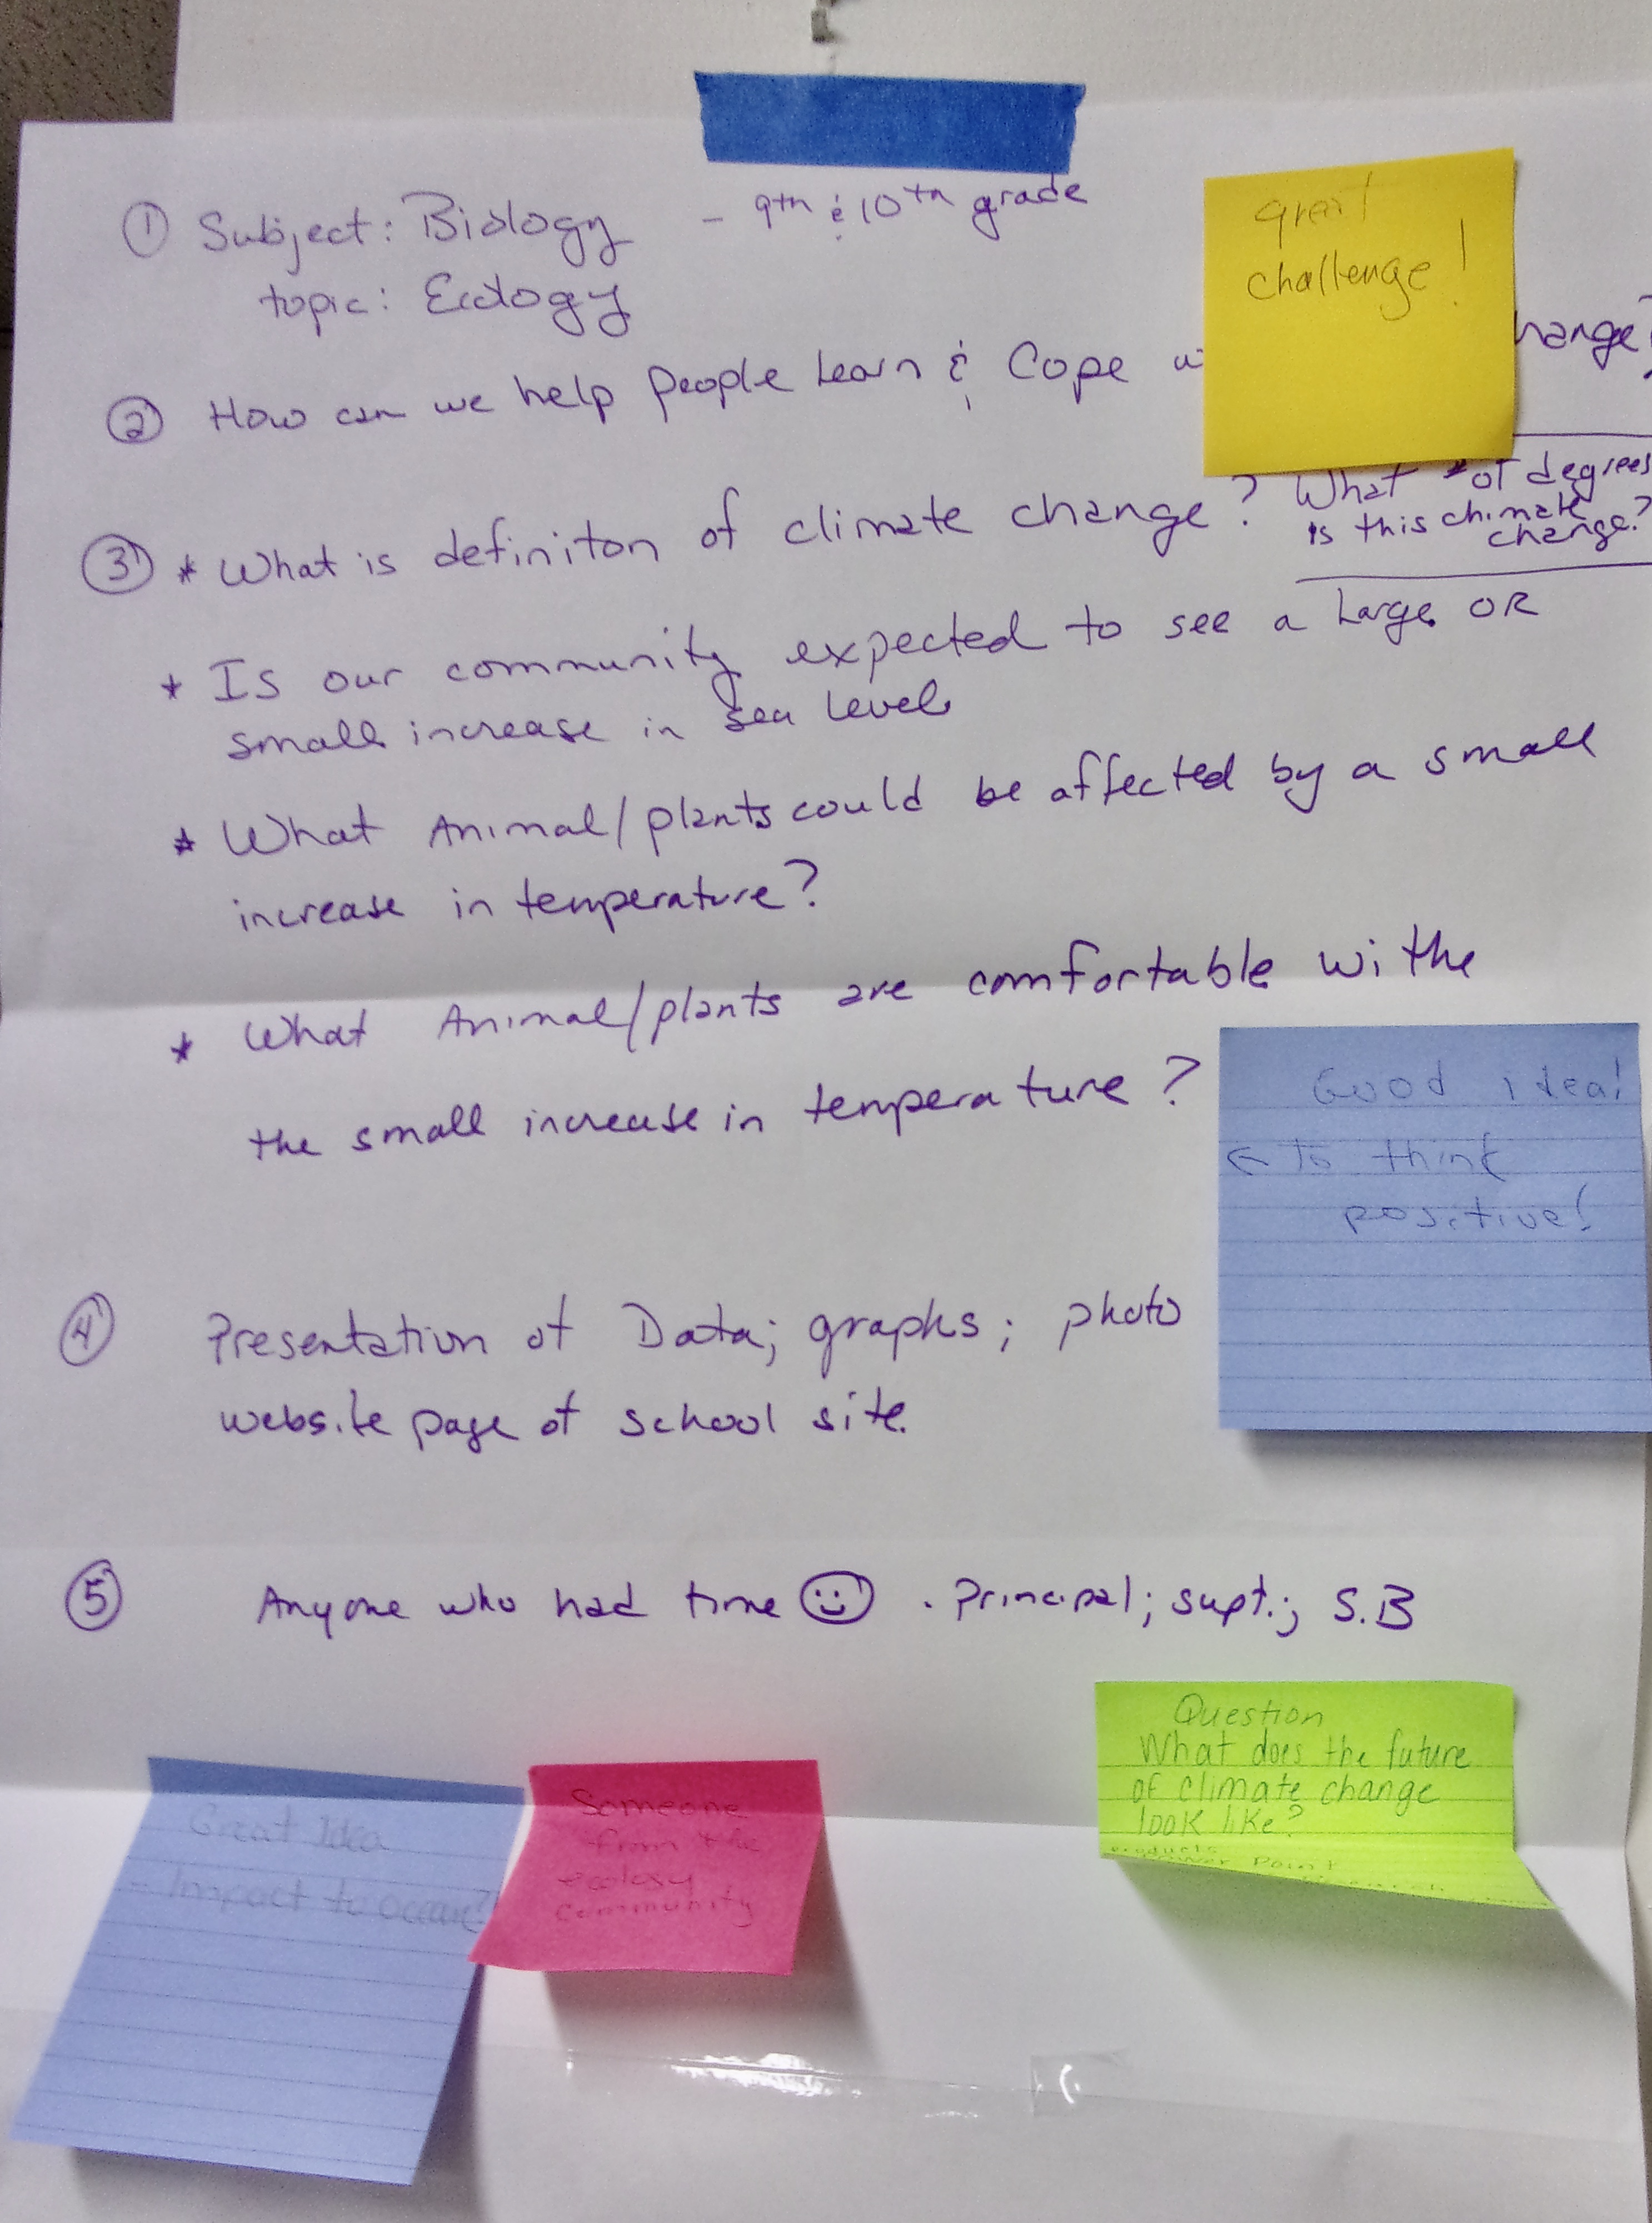 ① Subject: Biology - 9th & 10th grade
topic: Ecology
great
challenge!
② How can we help people Learn & Cope hange?
③ * What is definiton of climate change? What # of degrees
is this climate
change?
* Is our community expected to see a Large OR
small increase in sea level
* What Animal/plants could be affected by a small
increase in temperature?
* What Animal/plants are comfortable withe
the small increase in temperature?
Good idea!
← To think
positive!
④ Presentation of Data; graphs; photo
website page of school site.
⑤ Anyone who had time ☺ . Principal; supt.; S.B
Question
What does the future
of climate change
look like?
products
Power Point
Great Idea
- Impact to occur?
Someone
from the
ecology
community